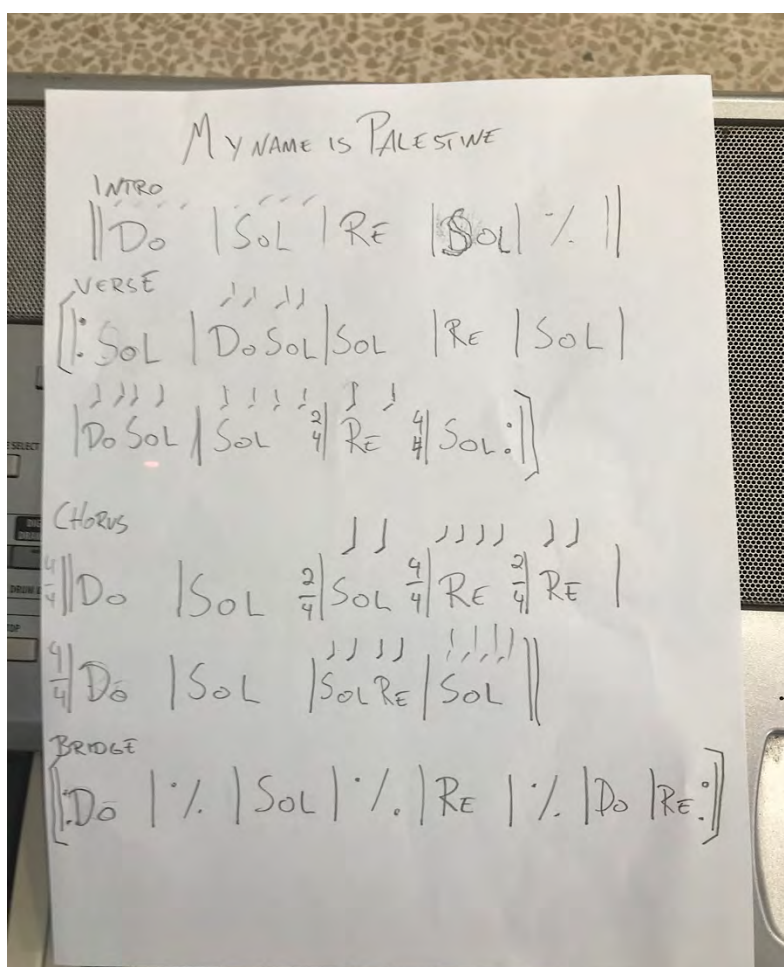 MY NAME IS PALESTINE
INTRO
||DO | SOL | RE | SOL | ٪ ||
VERSE
[|: SOL | DO SOL | SOL | RE | SOL |
| DO SOL | SOL 2/4 | RE 4/4 | SOL :|]
CHORUS
4/4 || DO | SOL 2/4 | SOL 4/4 | RE 2/4 | RE |
4/4 | DO | SOL | SOL RE | SOL ||
BRIDGE
[|: DO | ٪ | SOL | ٪ | RE | ٪ | DO | RE :|]
SELECT
DRUM